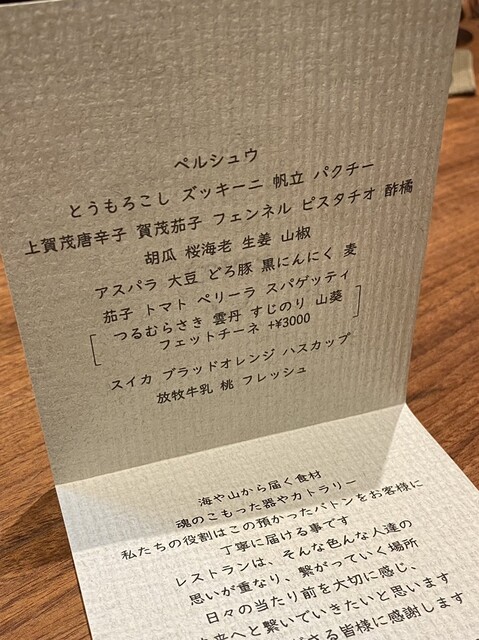 ペルシュウ
とうもろこし ズッキーニ 帆立 パクチー
上賀茂唐辛子 賀茂茄子 フェンネル ピスタチオ 酢橘
胡瓜 桜海老 生姜 山椒
アスパラ 大豆 どろ豚 黒にんにく 麦
茄子 トマト ペリーラ スパゲッティ
つるむらさき 雲丹 すじのり 山葵
フェットチーネ +¥3000
スイカ ブラッドオレンジ ハスカップ
放牧牛乳 桃 フレッシュ
海や山から届く食材
魂のこもった器やカトラリー
私たちの役割はこの預かったバトンをお客様に
丁寧に届ける事です
レストランは、そんな色んな人達の
思いが重なり、繋がっていく場所
日々の当たり前を大切に感じ、
未来へと繋いでいきたいと思います
さる皆様に感謝します